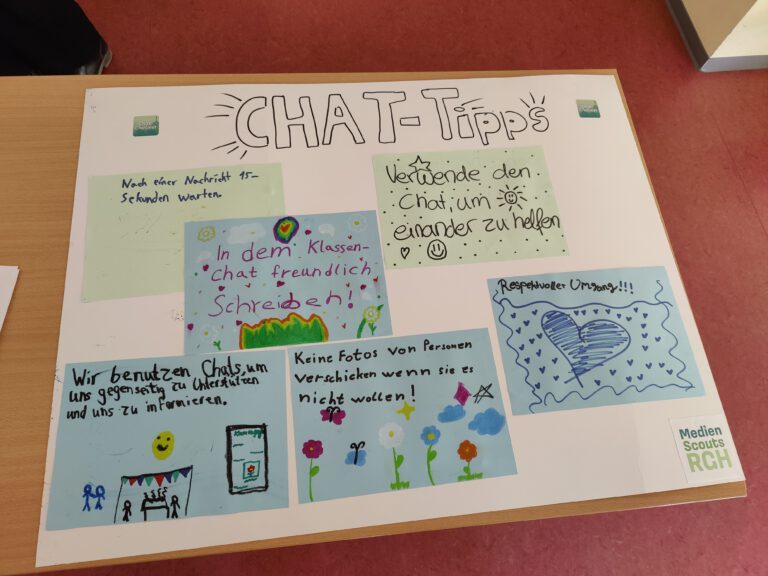 CHAT-Tipps
Nach einer Nachricht 15-
Sekunden warten.
Verwende den
Chat, um
einander zu helfen
In dem Klassen-
chat freundlich
Schreiben!
Respektvoller Umgang!!!
Wir benutzen Chats, um
uns gegenseitig zu Unterstützen
und uns zu informieren.
Keine Fotos von Personen
verschicken wenn sie es
nicht wollen!
Medien
Scouts
RGH